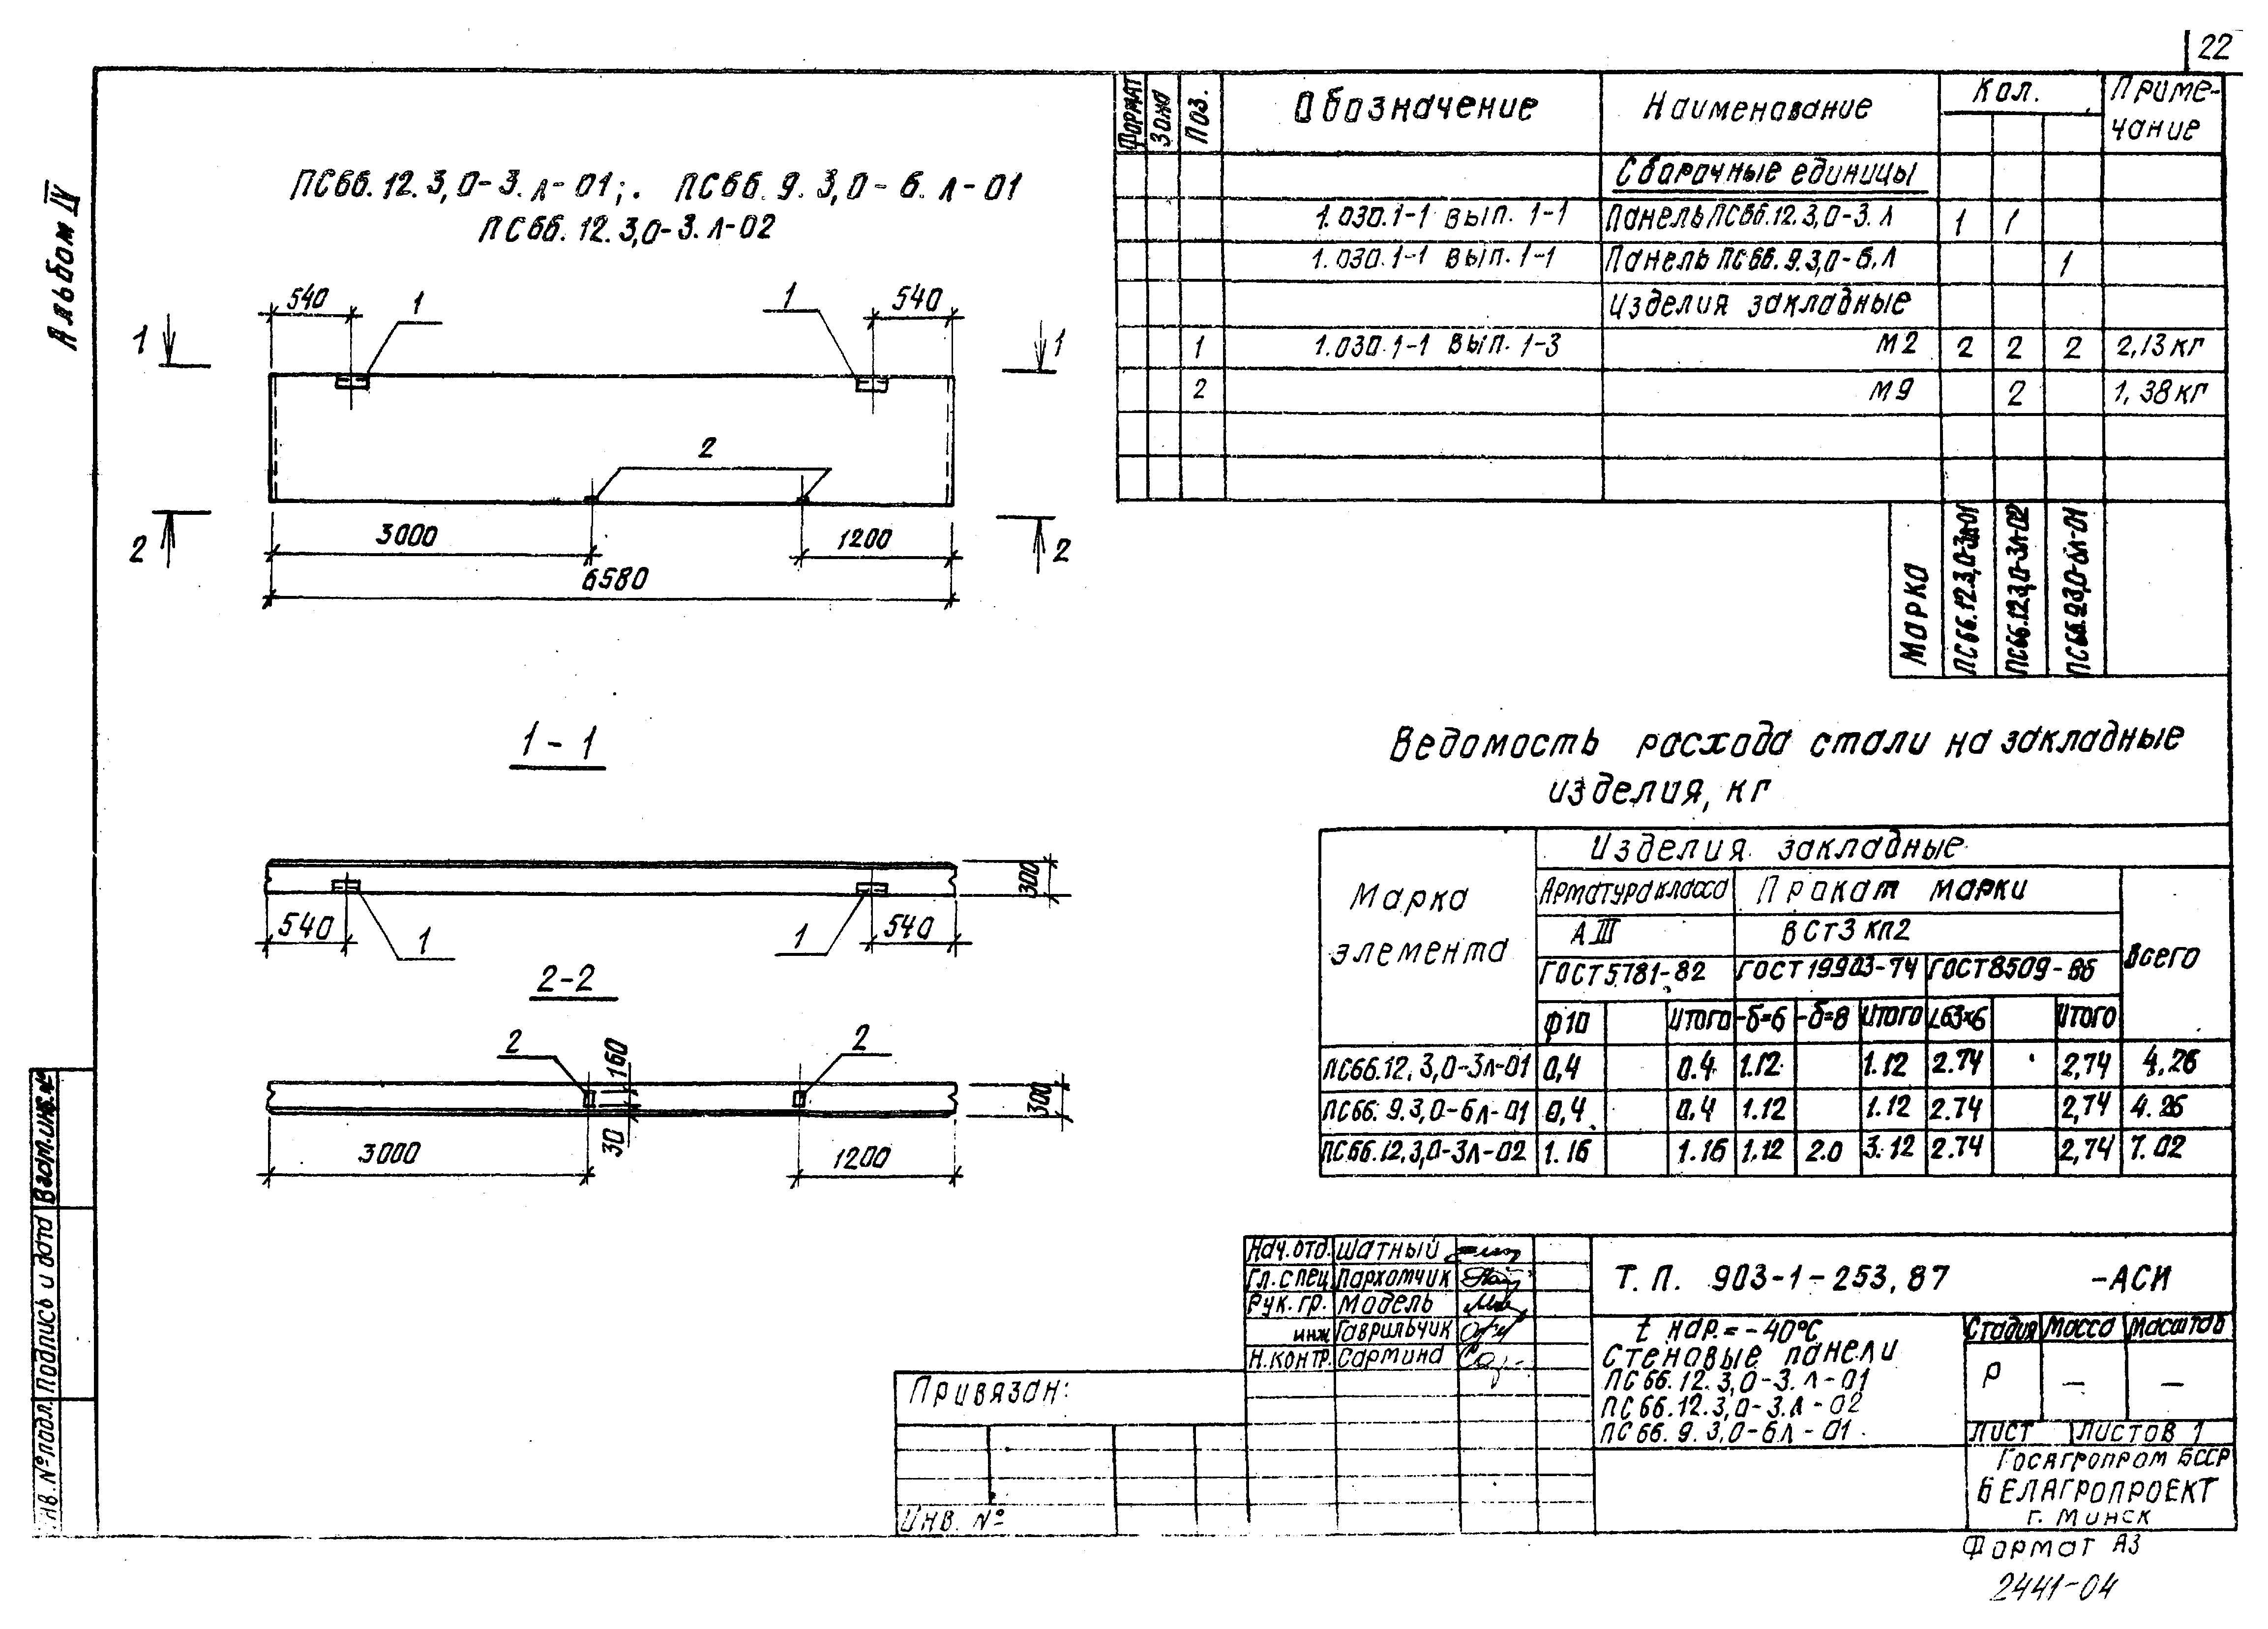 22
Альбом IV
ПС66.12.3,0-3.л-01; ПС66.9.3,0-6.л-01
ПС66.12.3,0-3.л-02
540 1 1 540
1 1
2
3000 1200
2 2
6580
1-1
300
540 1 1 540
2-2
2 160 2
300
30
3000 1200
Формат Зона Поз. Обозначение Наименование Кол. Приме-
чание
Сборочные единицы
1.030.1-1 вып. 1-1 Панель ПС66.12.3,0-3.л 1 1
1.030.1-1 вып. 1-1 Панель ПС66.9.3,0-6.л 1
Изделия закладные
1 1.030.1-1 вып. 1-3 М2 2 2 2 2,13кг
2 М9 2 1,38кг
Марка ПС66.12.3,0-3л-01 ПС66.12.3,0-3л-02 ПС66.9.3,0-6л-01
Ведомость расхода стали на закладные
изделия, кг
Марка
элемента
Изделия закладные
Арматура класса Прокат марки
АIII ВСт3 кп2
ГОСТ5781-82 ГОСТ19903-74 ГОСТ8509-86 Всего
ф10 Итого -δ=6 -δ=8 Итого L63×6 Итого
ПС66.12.3,0-3л-01 0,4 0.4 1.12 1.12 2.74 2,74 4,26
ПС66.9.3,0-6л-01 0,4 0.4 1.12 1.12 2.74 2,74 4.26
ПС66.12.3,0-3л-02 1.16 1.16 1,12 2.0 3.12 2.74 2,74 7.02
Нач.отд. Шатный
Гл.спец Пархомчик
Рук.гр. Модель
инж Гаврильчик
Н.контр. Сармина
Т.П. 903-1-253,87 -АСИ
t нар.=-40°С
Стеновые панели
ПС66.12.3,0-3.л-01
ПС66.12.3,0-3.л-02
ПС66.9.3,0-6л-01
Стадия Масса Масштаб
Р — —
Лист Листов 1
Госагропром БССР
БЕЛАГРОПРОЕКТ
г. Минск
Привязан:
Инв. №
Взам.инв.№
Подпись и дата
Инв.№подл.
Формат А3
2441-04